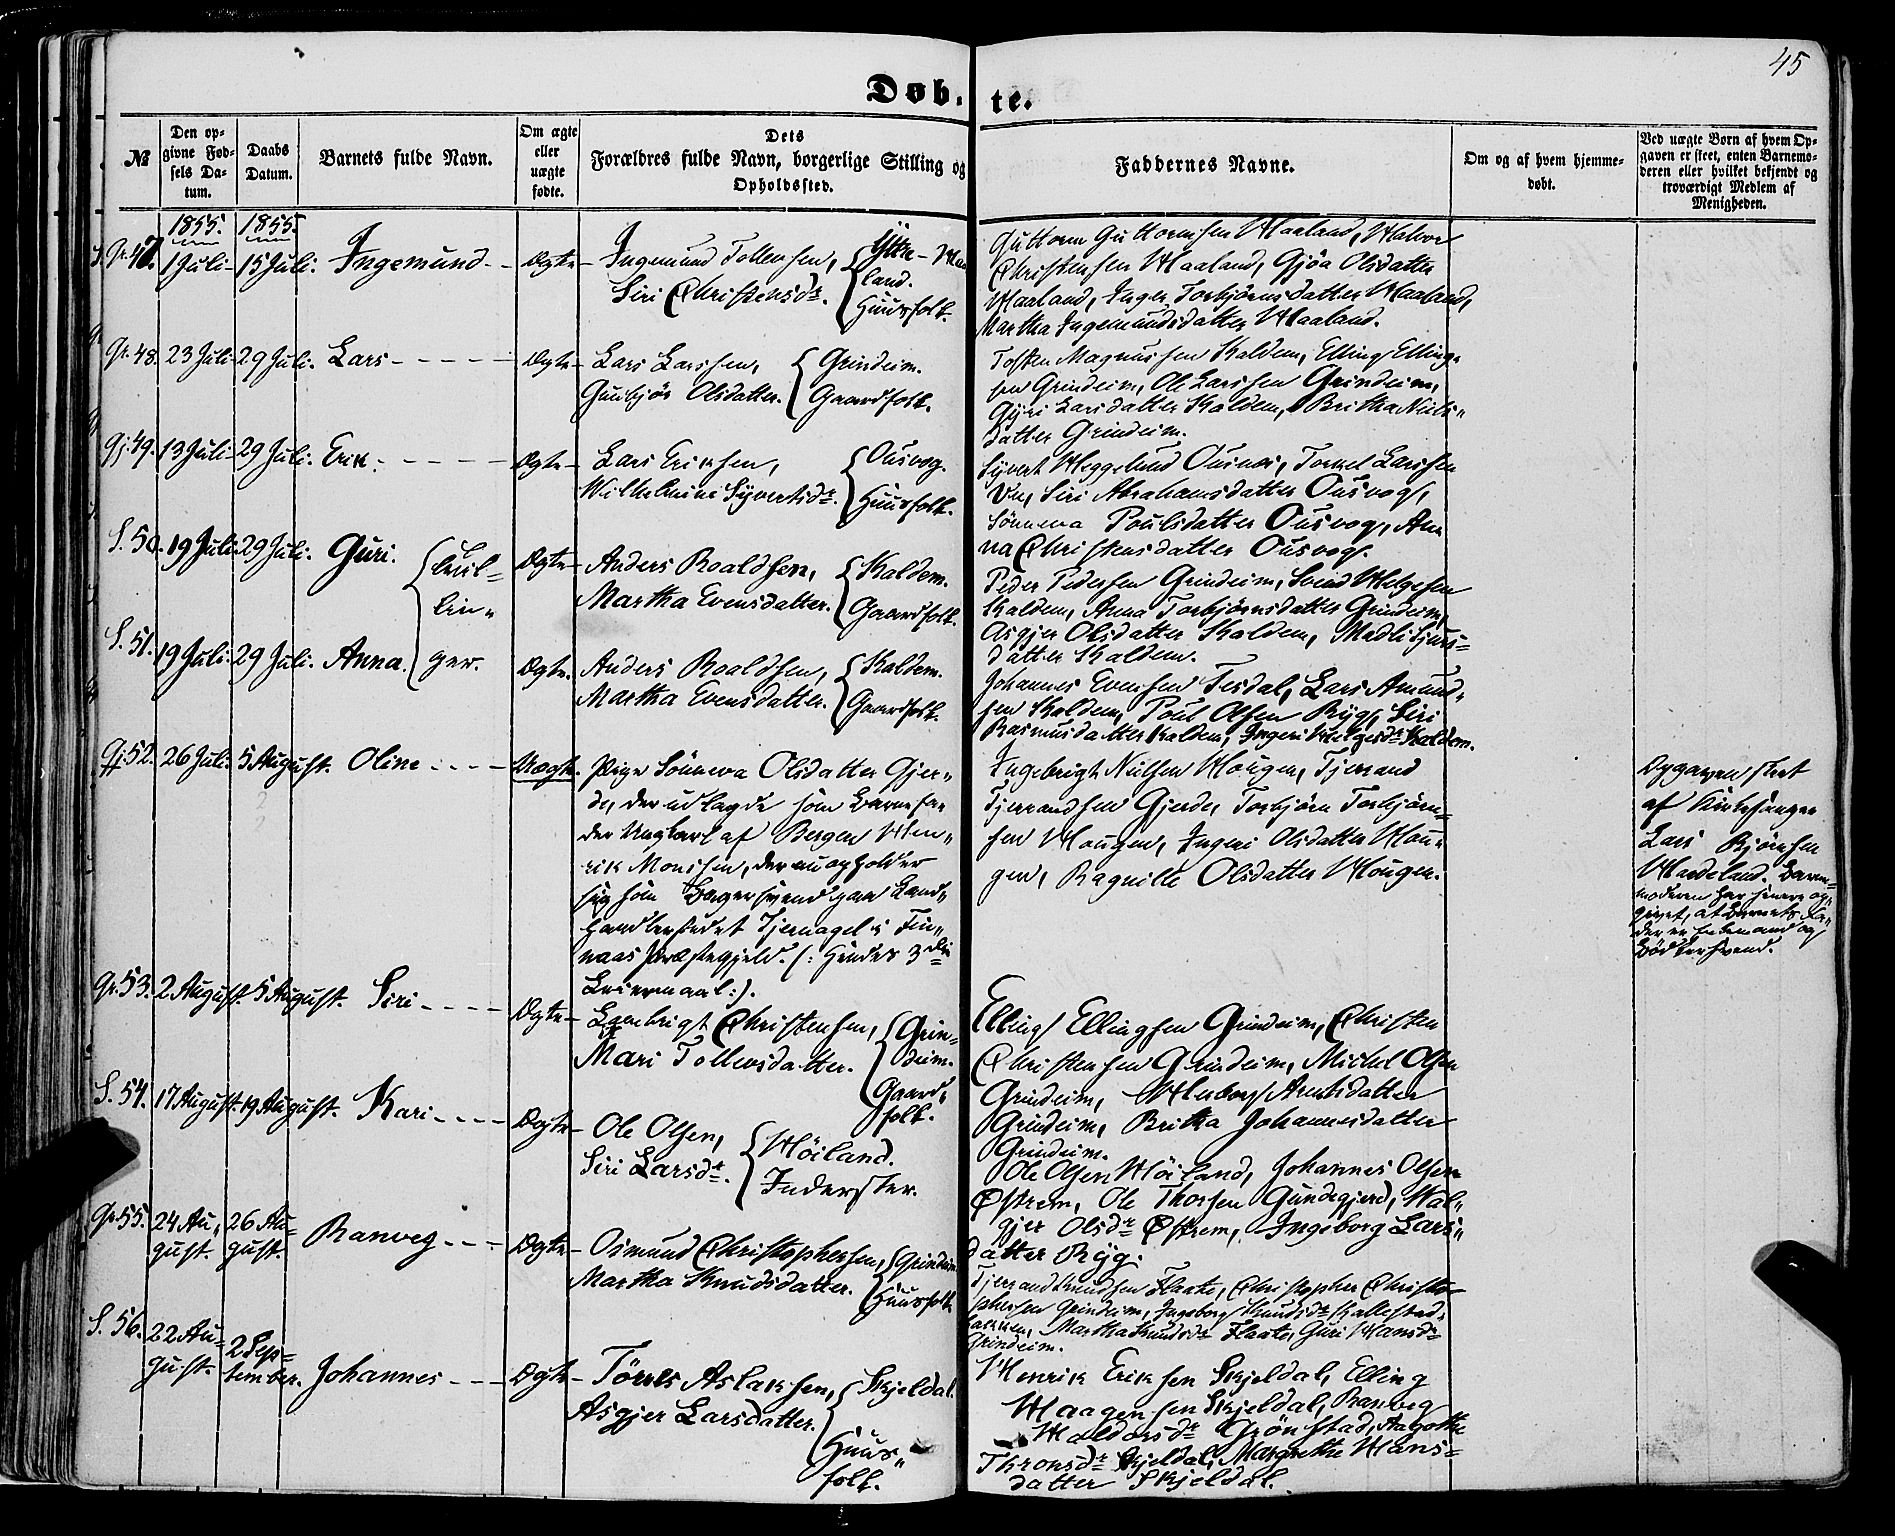 45
Døb-te.
№
Den opgivne Fødsels Datum.
Daabs Datum.
Barnets fulde Navn.
Om ægte eller uægte fødte.
Dets Forældres fulde Navn, borgerlige Stilling og Opholdssted.
Faddernes Navne.
Om og af hvem hjemmedøbt.
Ved uægte Børn af hvem Opgaven er skeet, enten Barnemoderen eller hvilket bekjendt og troværdigt Medlem af Menigheden.
1855. 1855.
Gr. 47. 1 Juli 15 Juli. Ingemund - - Ægte - Ingemund Tollevsen, Yttre-Haa
Siri Christensdr. land.
Huusfolk.
Guttorm Guttormsen Haaland, Halvor
Christensen Haaland, Gjöa Olsdatter
Haaland, Inger Torbjörnsdatter Haaland,
Martha Ingemundsdatter Haaland.
Gr. 48. 23 Juli 29 Juli. Lars - - - - - Ægte - Lars Larssen, Grindeim.
Gunbjör Olsdatter. Gaardfolk.
Tosten Magnussen Kaldem, Elling Elling-
sen Grindeim, Ole Larssen Grindeim,
Gyri Larsdatter Kaldem, Britha Niels-
datter Grindeim.
Gj. 49. 13 Juli 29 Juli. Erik. - - - - - Ægte - Lars Eriksen, Ousvog.
Wilhelmine Syvertsdr. Huusfolk.
Syvert Heggelund Ousnæs, Torkel Larssen
Siri Abrahamsdatter Ousvog,
Sönneva Poulsdatter Ousvog, An-
na Christensdatter Ousvog.
S. 50. 19 Juli 29 Juli. Guri. Ægte - Anders Roaldsen, Kaldem.
Martha Evensdatter. Gaardfolk.
Tvil-
lin-
ger.
Peder Pedersen Grindeim, Svend Helgesen
Kaldem, Anna Torbjörnsdatter Grindeim,
Asgjer Olsdatter Kaldem, Madli Sjurs-
datter Kaldem.
S. 51. 19 Juli 29 Juli. Anna. Ægte. Anders Roaldsen, Kaldem.
Martha Evensdatter. Gaardfolk.
Johannes Evensen Tesdal, Lars Amund-
sen Kaldem, Poul Olsen Ryg, Siri
Rasmusdatter Kaldem, Ingeri Helgesdr Kaldem.
Gj. 52. 26 Juli. 5 August. Oline - - - - Uægte. Pige Sönneva Olsdatter Gjer-
de, der udlagde som Barnefa-
der Ungkarl af Bergen Hen-
rik Monssen, der nu opholder
sig som Bagersvend paa Land-
handlerstedet Tjernagel i Fin-
naas Præstegjeld. (: Hendes 3die
Leiermaal :).
Ingebrigt Nielsen Hougen, Tjerand
Tjerandsen Gjerde, Torbjörn Torbjörn-
sen Hougen, Ingeri Olsdatter Hou-
gen, Ragnille Olsdatter Hougen.
Opgaven skeet
af Kirkesanger
Lars Björnsen
Handeland. Barne-
moderen har senere op-
givet, at Barnets Fa-
der er Enkemand og
Bödkersvend.
Gr. 53. 2 August. 5 August. Siri - - - - Ægte - Engebrigt Christensen, Grin-
Mari Tollevsdatter. deim.
Gaard-
folk.
Elling Ellingsen Grindeim, Christen
Christensen Grindeim, Michel Olsen
Grindeim, Herborg Arentsdatter
Grindeim, Britha Johannesdatter
Grindeim.
S. 54. 17 August. 19 August. Kari - - - - Ægte - Ole Olsen, Höiland.
Siri Larsdr. Inderster.
Ole Olsen Höiland, Johannes Olsen
Østrem, Ole Thorsen Gundegjerd, Val-
gjer Olsdr Østrem, Ingeborg Lars-
datter Ryg.
Gr. 55. 24 Au- 26 Au-
gust. gust. Ranveg - - - Ægte - Osmund Christophersen, Grindeim
Martha Knudsdatter. Huusfolk
Tjerand Knudsen Flaate, Christopher Christo-
phersen Grindeim, Ingeborg Knudsdr Kallestad-
Martha Knudsdr Flaate, Guri Hansdr
Grindeim.
S. 56. 22 Au- 2 Sep-
gust. tember. Johannes - - - Ægte - Törres Aslaksen, Skjeldal.
Asgjer Larsdatter. Huus-
folk.
Henrik Eriksen Skjeldal, Elling
Haagensen Skjeldal, Ranveg
Haldorsdr Grönstad, Aagothe
Thronsdr Skjeldal, Margrethe Hans-
datter Skjeldal.